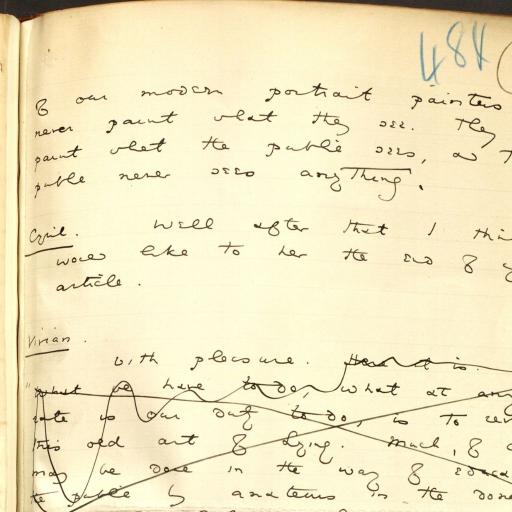 484
of our modern portrait painters
never paint what they see. They
paint what the public sees, and
public never sees anything.
Cyril. Well after that I
would like to hear the end of
article.
Vivian.
With pleasure. Here it is.
"What we have to do, what at
rate is our duty to do, is to
this old art of Lying. Much, of
may be done in the way of
the public by amateurs in the